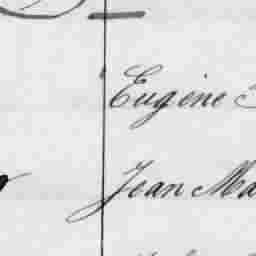 Eugène
Jean Ma